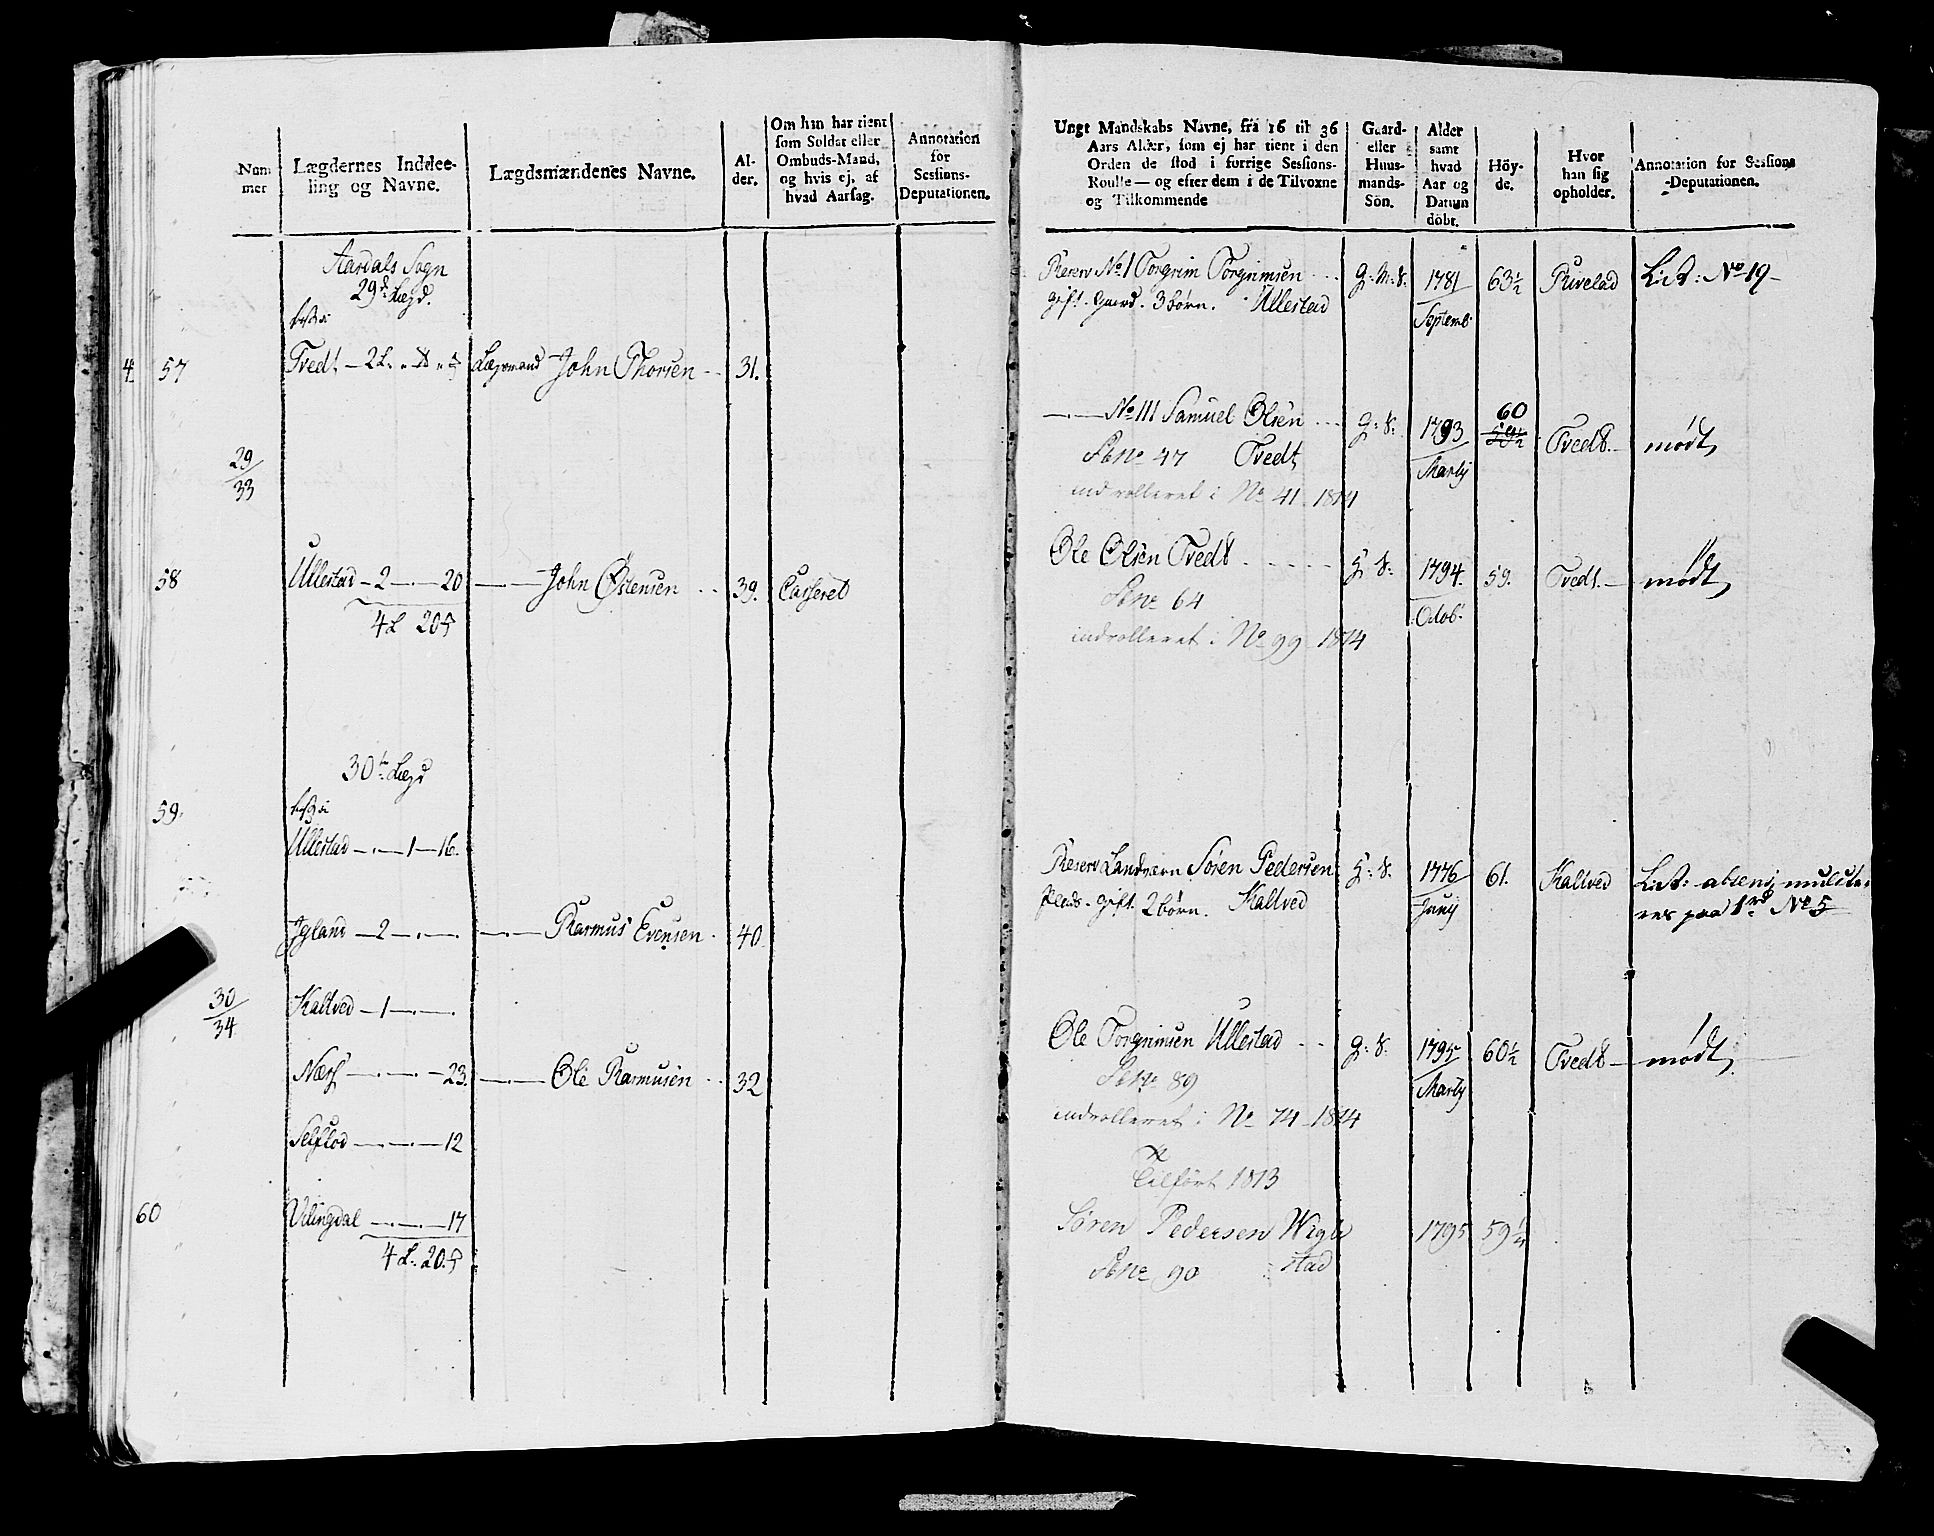 Num
mer
Lægdernes Inddee-
ling og Navne.
Lægdsmændenes Navne.
Al-
der.
Om han har tient
som Soldat eller
Ombuds-Mand,
og hvis ej, af
hvad Aarsag.
Annotation
for
Sessions-
Deputationen.
Aardals Sogn
29d Lægd.
57
Tvedt — 2
John Thorsen 31.
29/33
58 Ullestad — 2 — 20 John Østensen 39. Casseret
4 20
30te Lægd
59
Ullestad — 1 — 16.
Jgland — 2 — Rasmus Evensen 40
30/34
Kaltved — 1 —
Næss — 23. Ole Rasmusen 32
12
60 Valingdal — 17
4 20
Ungt Mandskabs Navne, fra 16 til 36
Aars Alder, som ej har tient i den
Orden de stod i forrige Sessions-
Roulle — og efter dem i de Tilvoxne
og Tilkommende
Gaard-
eller
Huus-
mands-
Sön.
Alder
samt
hvad
Aar og
Datum
döbt.
Höy-
de.
Hvor
han sig
opholder.
Annotation for Sessions
-Deputationen.
Reserv No 1 Torgrim Torgrimsen G: M: S: 1781 63½ Riveland No 19
gift. Gaard. 3 børn. Ullestad Septemb
No 111 Samuel Olsen G: S: 1793 60 59½ Tvedt mødt
No 47 Tvedt Marty
indrolleret i No 41 1814
Ole Olsen Tvedt G: S: 1794. 59. Tvedt mødt
No 64 Octob:
indrolleret i No 99 1814
Reserv Landværn Søren Pedersen G: S: 1776 61. Kaltved absent
Plads. gift. 2 børn. Kaltved Juny paa No 5
Ole Torgrimsen Ullestad G: S: 1795 60½ Tvedt mødt
No 89 Marty
indrolleret i No 74 1814
Tilført 1813
Søren Pedersen Wigle 1795 59¼
No 90 stad